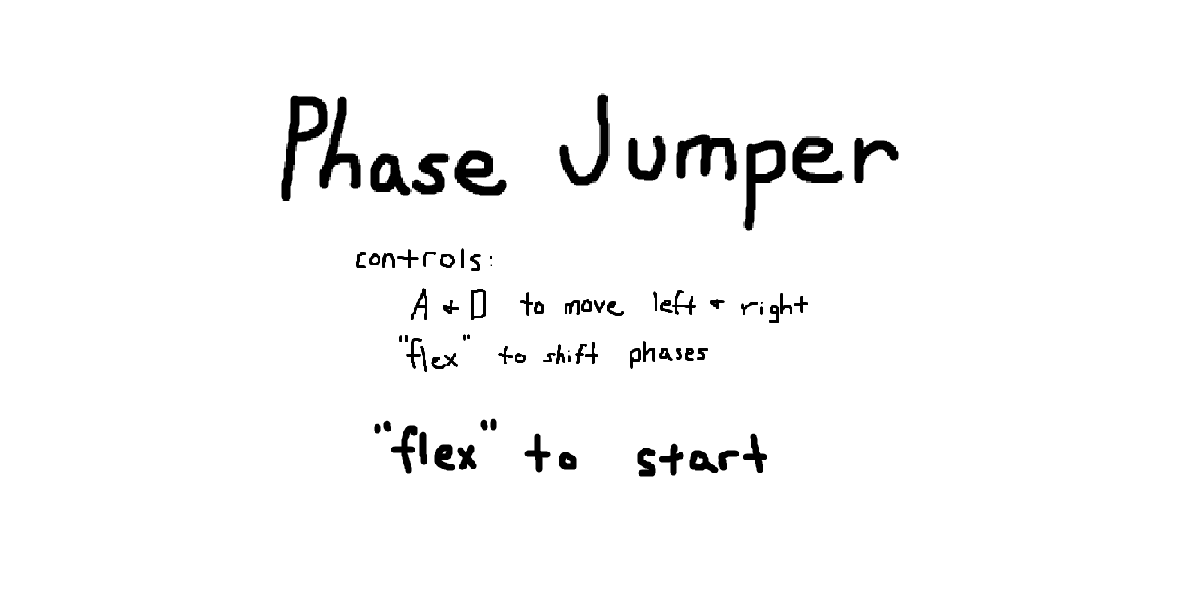 Phase Jumper
controls:
A + D to move left + right
"flex" to shift phases
"flex" to start